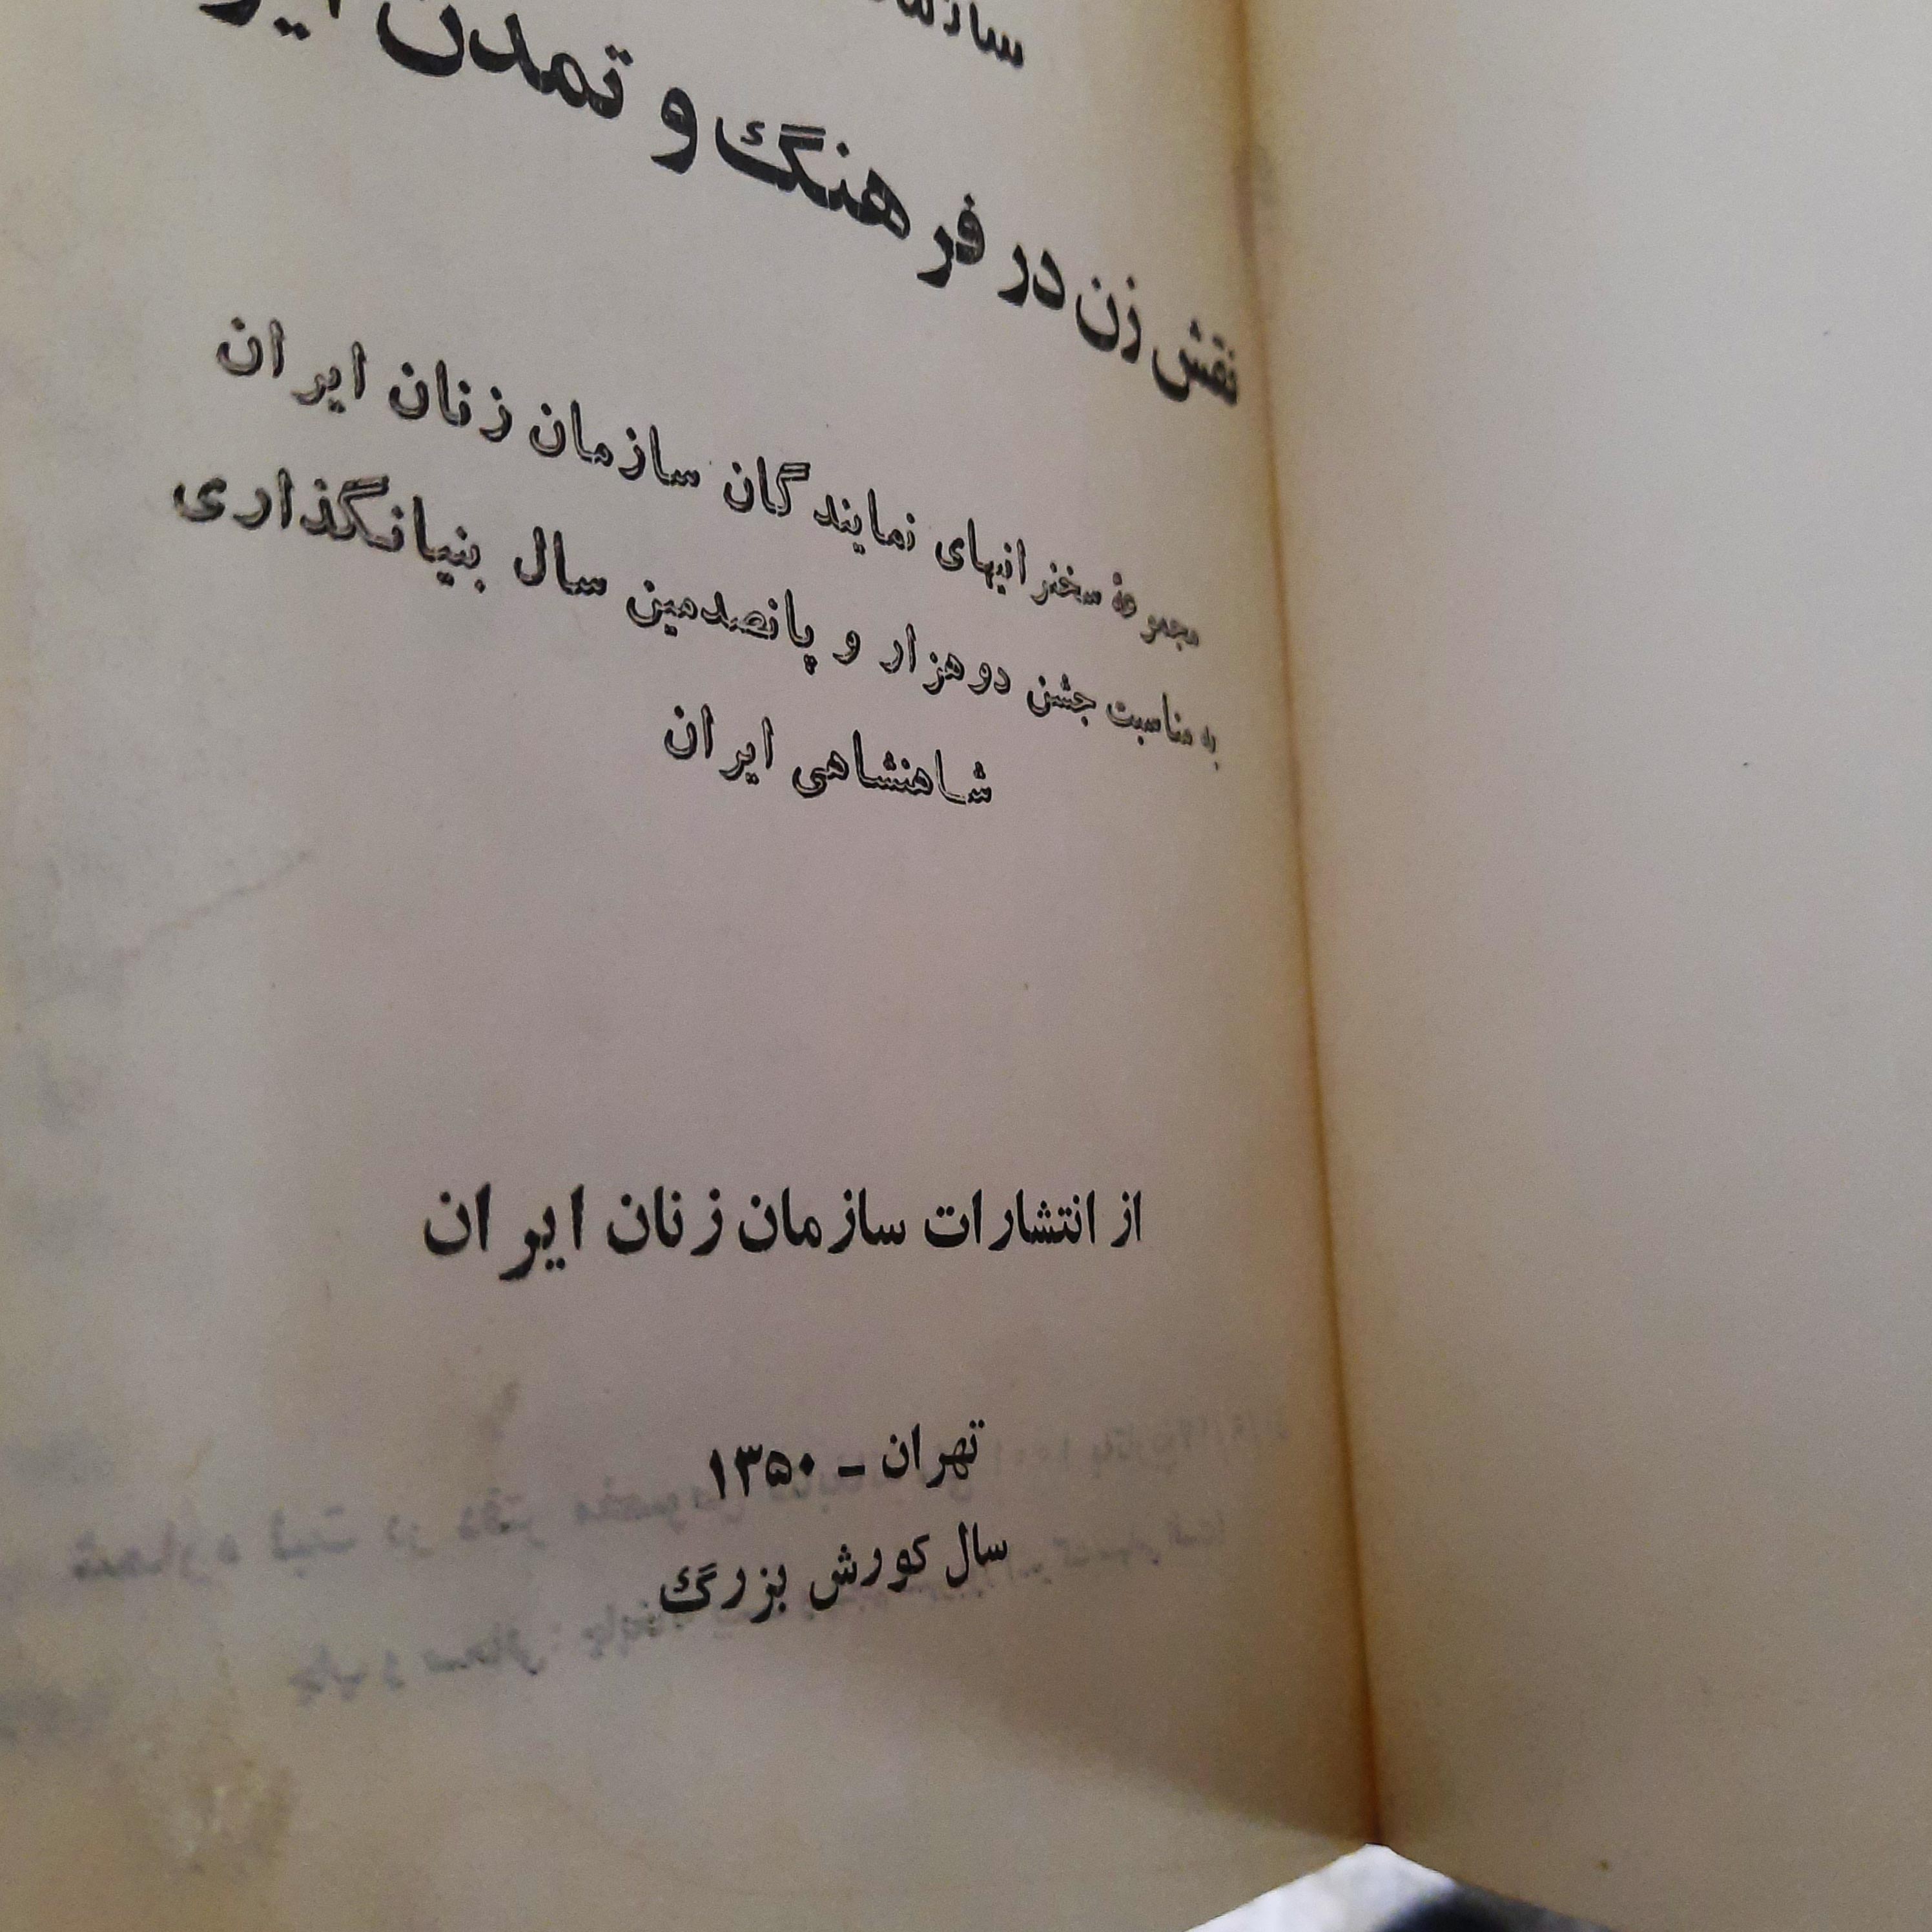 نقش زن در فرهنگ و تمدن
مجموعهٔ سخنرانیهای نمایندگان سازمان زنان ایران
به مناسبت جشن دوهزار و پانصدمین سال بنیانگذاری
شاهنشاهی ایران
از انتشارات سازمان زنان ایران
تهران ـ ۱۳۵۰
سال کورش بزرگ